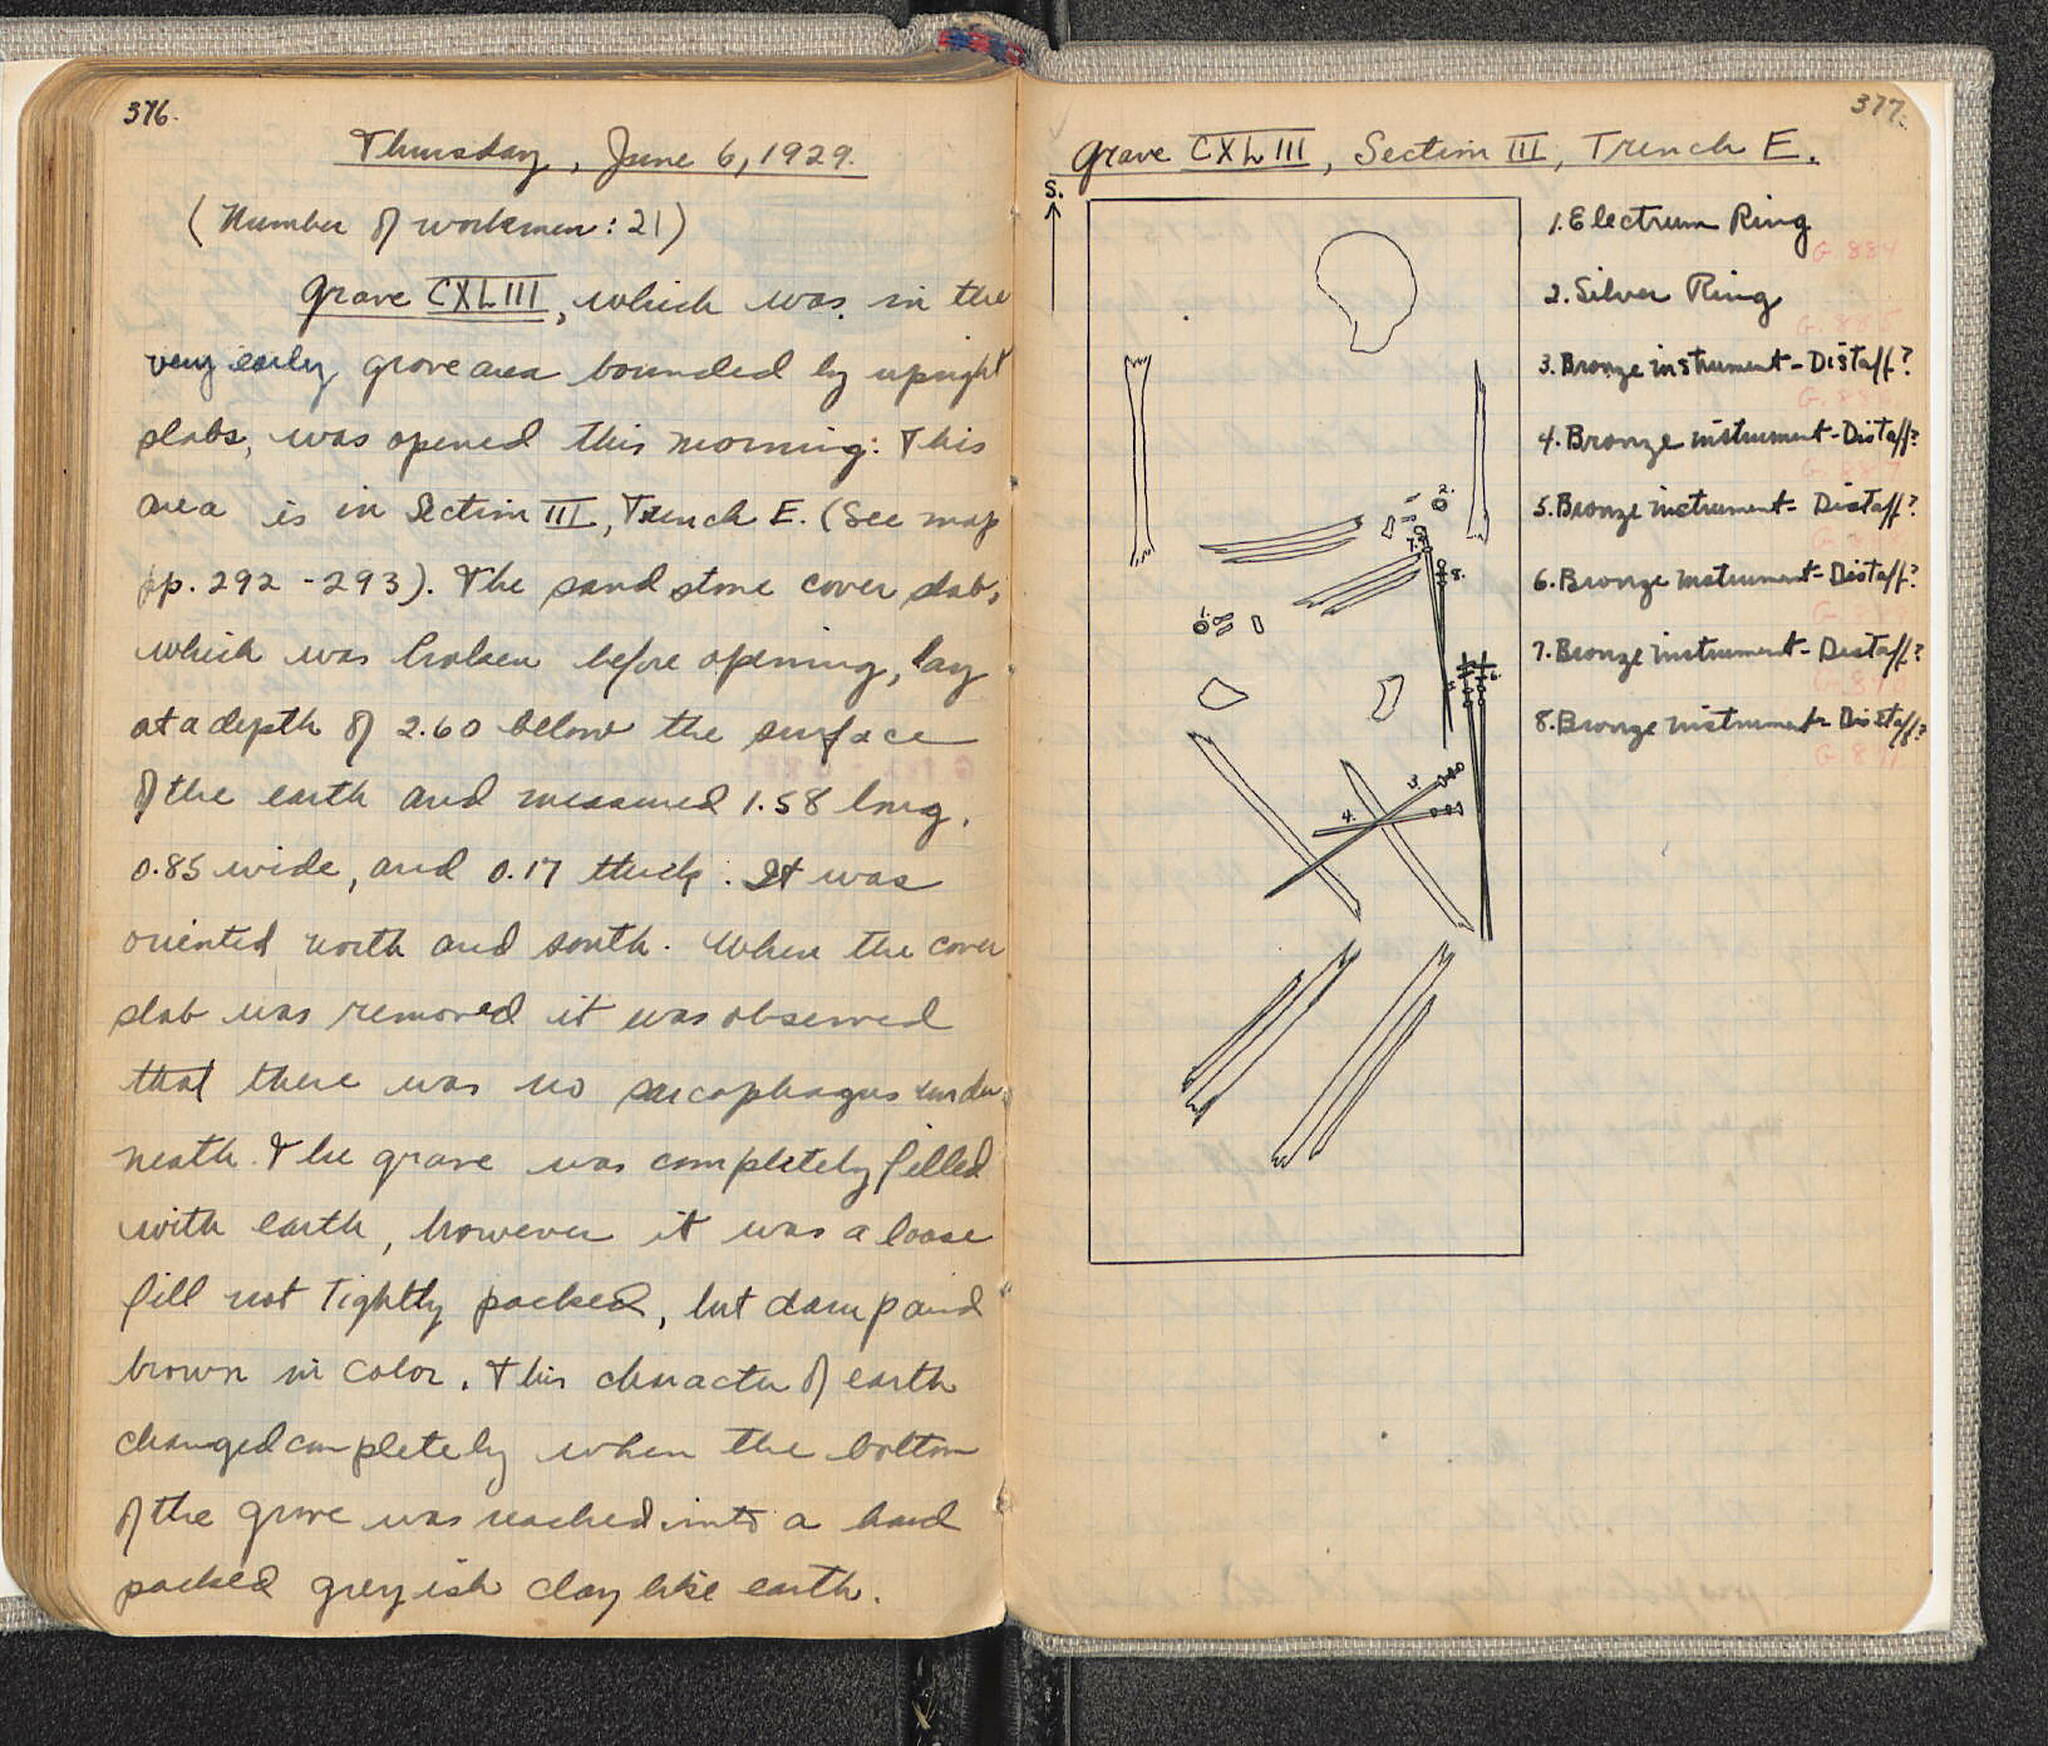 376.
Thursday, June 6, 1929.
(Number of workmen: 21)
Grave CXLIII, which was in the
very early grave area bounded by upright
slabs, was opened this morning. This
area is in Section III, Trench E. (See map
pp. 292-293). The sandstone cover slab,
which was broken before opening, lay
at a depth of 2.60 below the surface
of the earth and measured 1.58 long,
0.85 wide, and 0.17 thick. It was
oriented north and south. When the cover
slab was removed it was observed
that there was no sarcophagus under
neath. The grave was completely filled
with earth, however it was a loose
fill not tightly packed, but damp and
brown in color. This character of earth
changed completely when the bottom
of the grave was reached into a hard
packed greyish clay like earth.
377.
Grave CXLIII, Section III, Trench E.
S.
1. Electrum Ring
G. 884
2. Silver Ring
G. 885
3. Bronze instrument - Distaff?
G. 886
4. Bronze instrument - Distaff?
G. 887
5. Bronze instrument - Distaff?
G. 888
6. Bronze instrument - Distaff?
G.
7. Bronze instrument - Distaff?
G. 890
8. Bronze instrument - Distaff?
G 891
2.
7.
8.
1.
6.
3.
4.